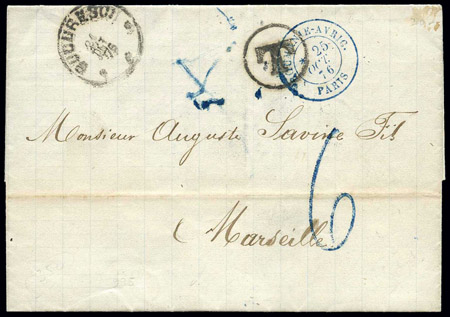 BUCURESCI
T
E-AVRIC.
25
OCT.
76
PARIS
Monsieur Auguste Savine Fils
6
Marseille